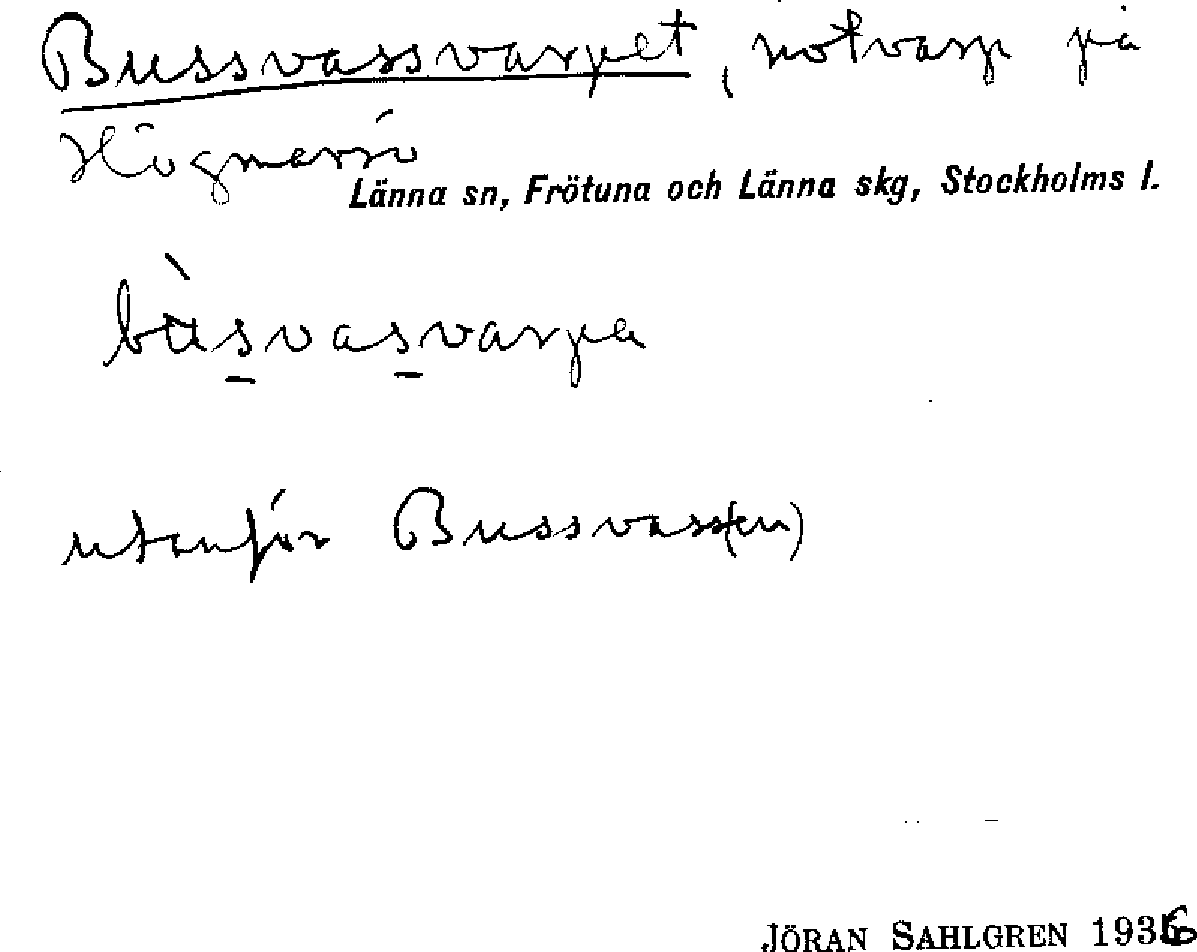 Bussvassvarpet, notvarp på
Högmarsö
Länna sn, Frötuna och Länna skg, Stockholms l.
bùsvasvarpa
utanför Bussvass(en)
JÖRAN SAHLGREN 1936